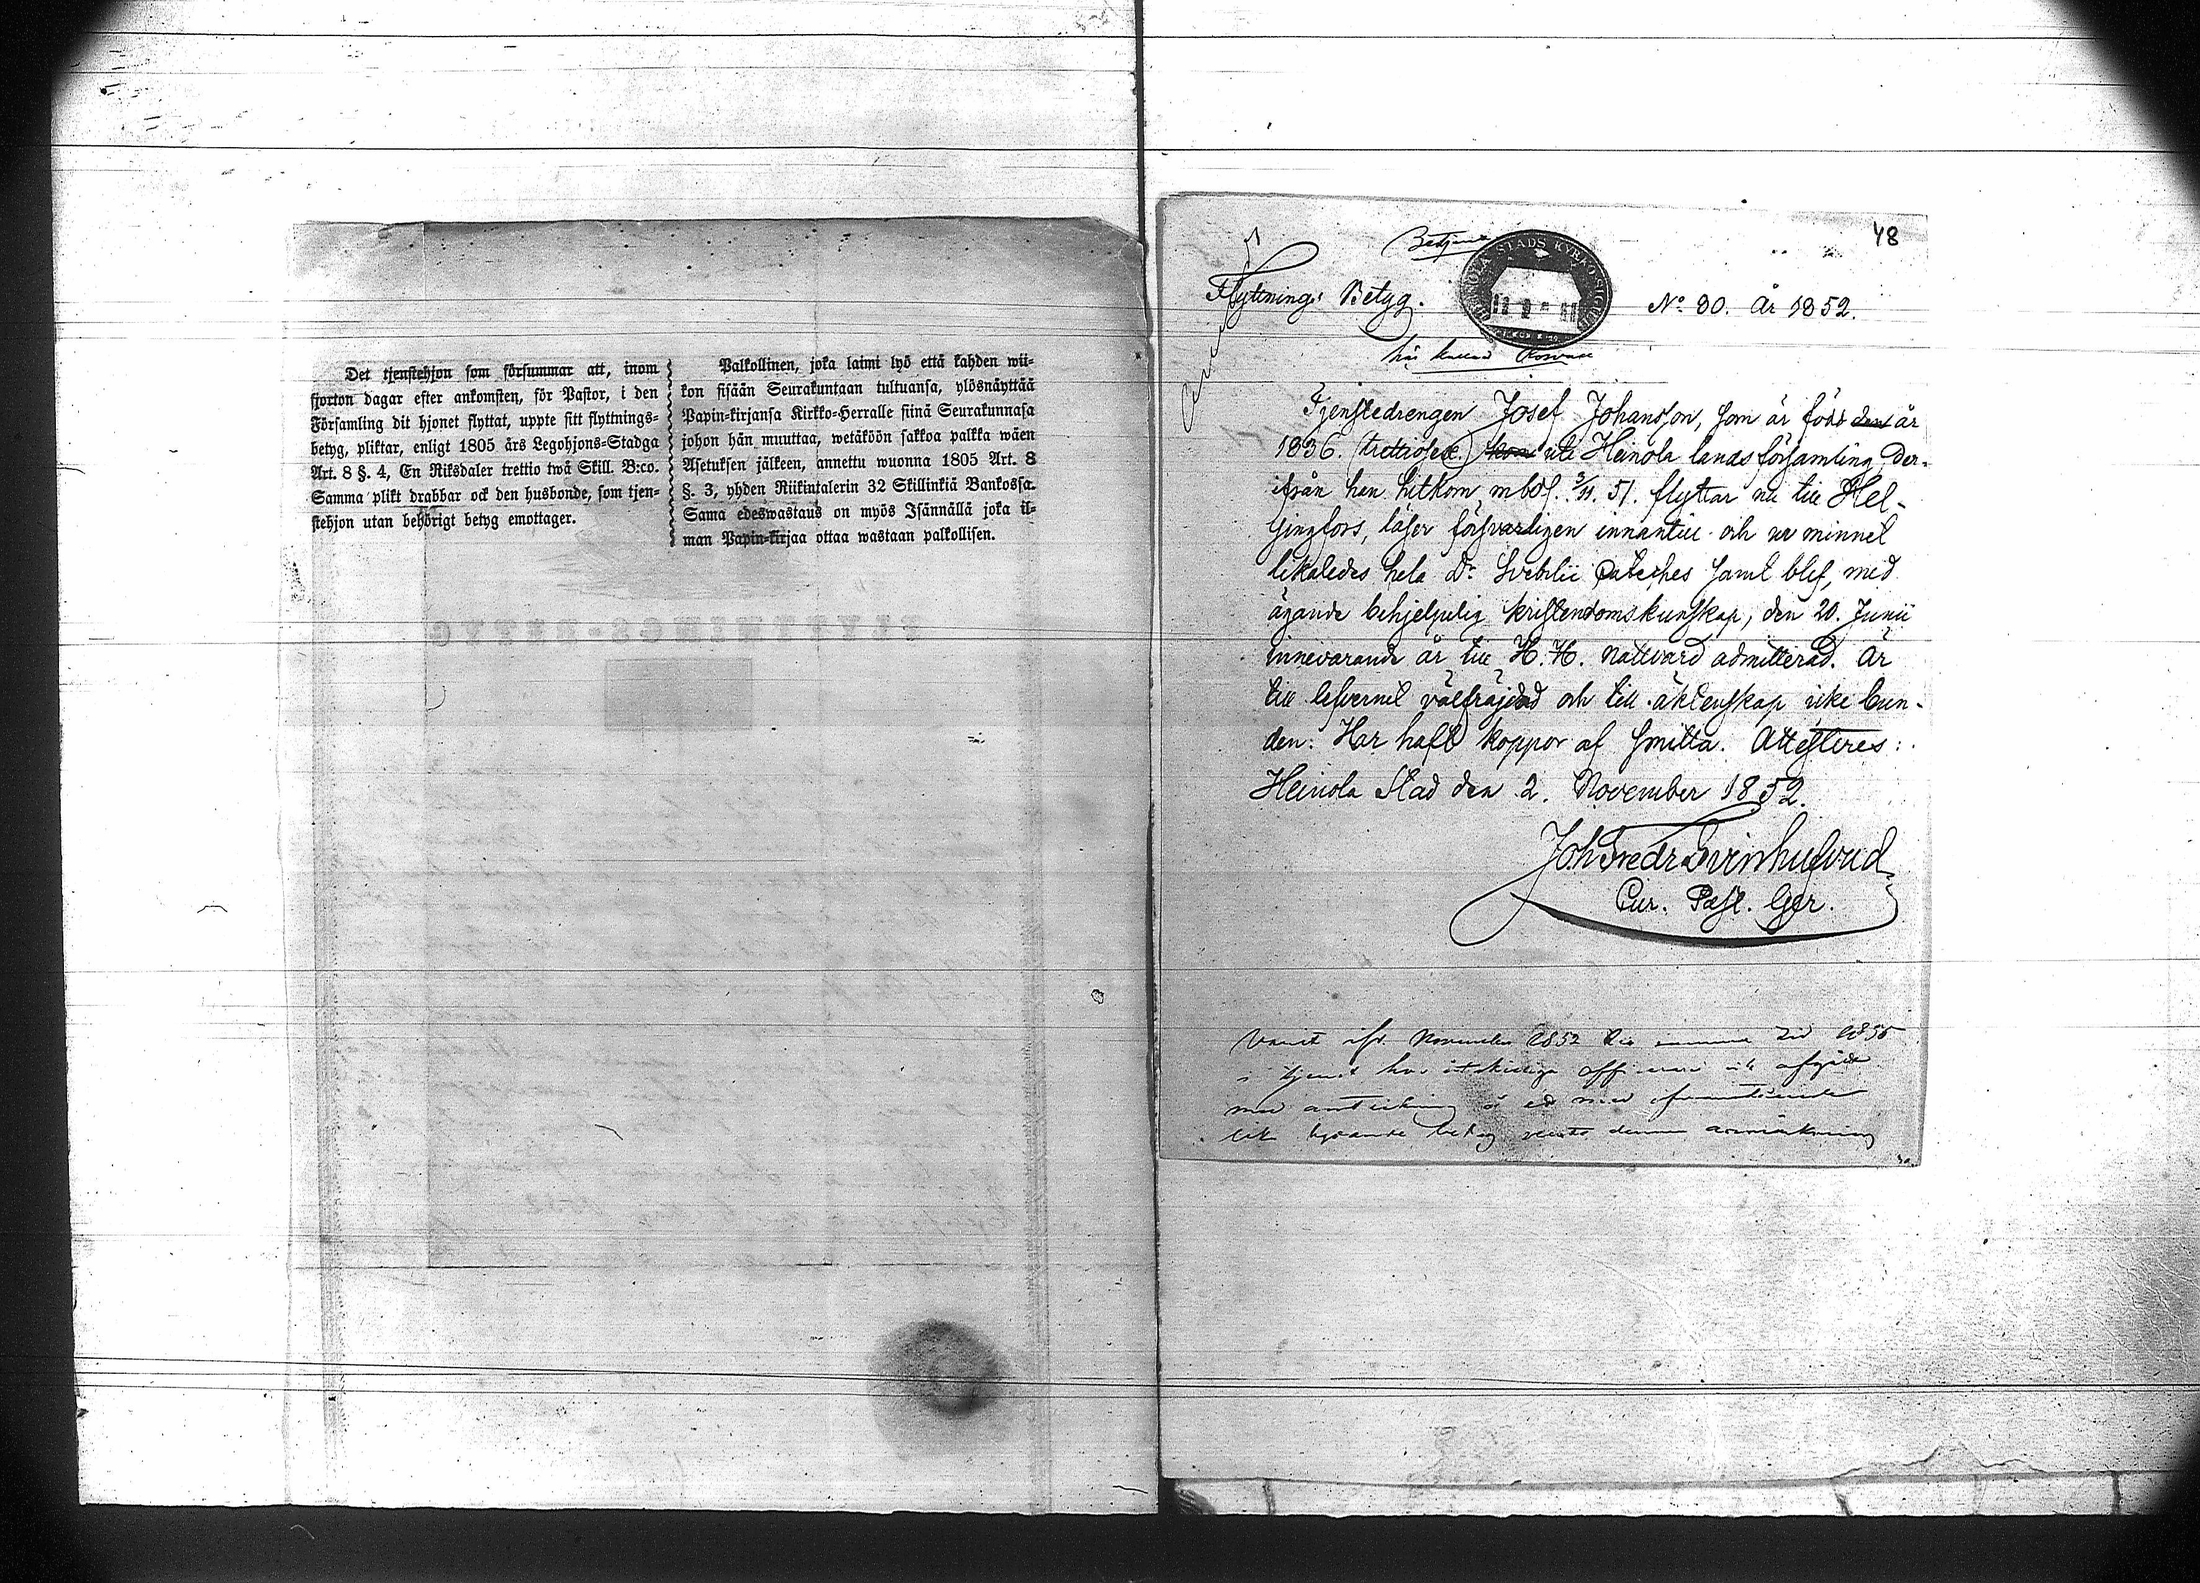 Det tjenstehjon som försummar att, inom
fjorton dagar efter ankomsten, för Pastor, i den
Församling dit hjonet flyttat, uppte sitt flyttnings-
betyg, pliktar, enligt 1805 års Legohjons-Stadga
Art. 8 §. 4, En Riksdaler trettio twå Skill. B:co.
Samma plikt drabbar ock den husbonde, som tjen-
stehjon utan behörigt betyg emottager.
Palkollinen, joka laimi lyö että kahden wii-
kon sisään Seurakuntaan tultuansa, ylösnäyttää
Papin-kirjansa Kirkko-Herralle siinä Seurakunnasa
johon hän muuttaa, wetäköön sakkoa palkka wäen
Asetuksen jälkeen, annettu wuonna 1805 Art. 8
§. 3, yhden Riikintalerin 32 Skillinkiä Bankossa.
Sama edeswastaus on myös Isännällä joka il-
man Papin-kirjaa ottaa wastaan palkollisen.
FLYTTNINGS-BETYG
48
STADS KYRKO SIGILL
Flyttnings Betyg.
No 80. År 1852.
Tjenstedrengen Josef Johansson, som är född den år
1836. (trettiosex.) kom uti Heinola landsförsamling, der-
ifrån han hitkom m bet. 3/11. 51. flyttar nu till Hel-
singfors, läser försvarligen innantill och ur minnet
likaledes hela Dr Svebilii Cateches samt blef, med
ägande behjelpelig kristendomskunskap, den 20. Junii
innevarande år till H. H. Nattvard admitterad. Är
till lefvernet välfräjdad och till äktenskap icke bun-
den. Har haft koppor af smitta. Attesteres:
Heinola Stad den 2. November 1852.
Joh Fredr Svinhufvud
Cur. Past. Ger.
November 1852 1855
i tjenst hos åtskilliga
med anteckning
betyg denna anmärkning